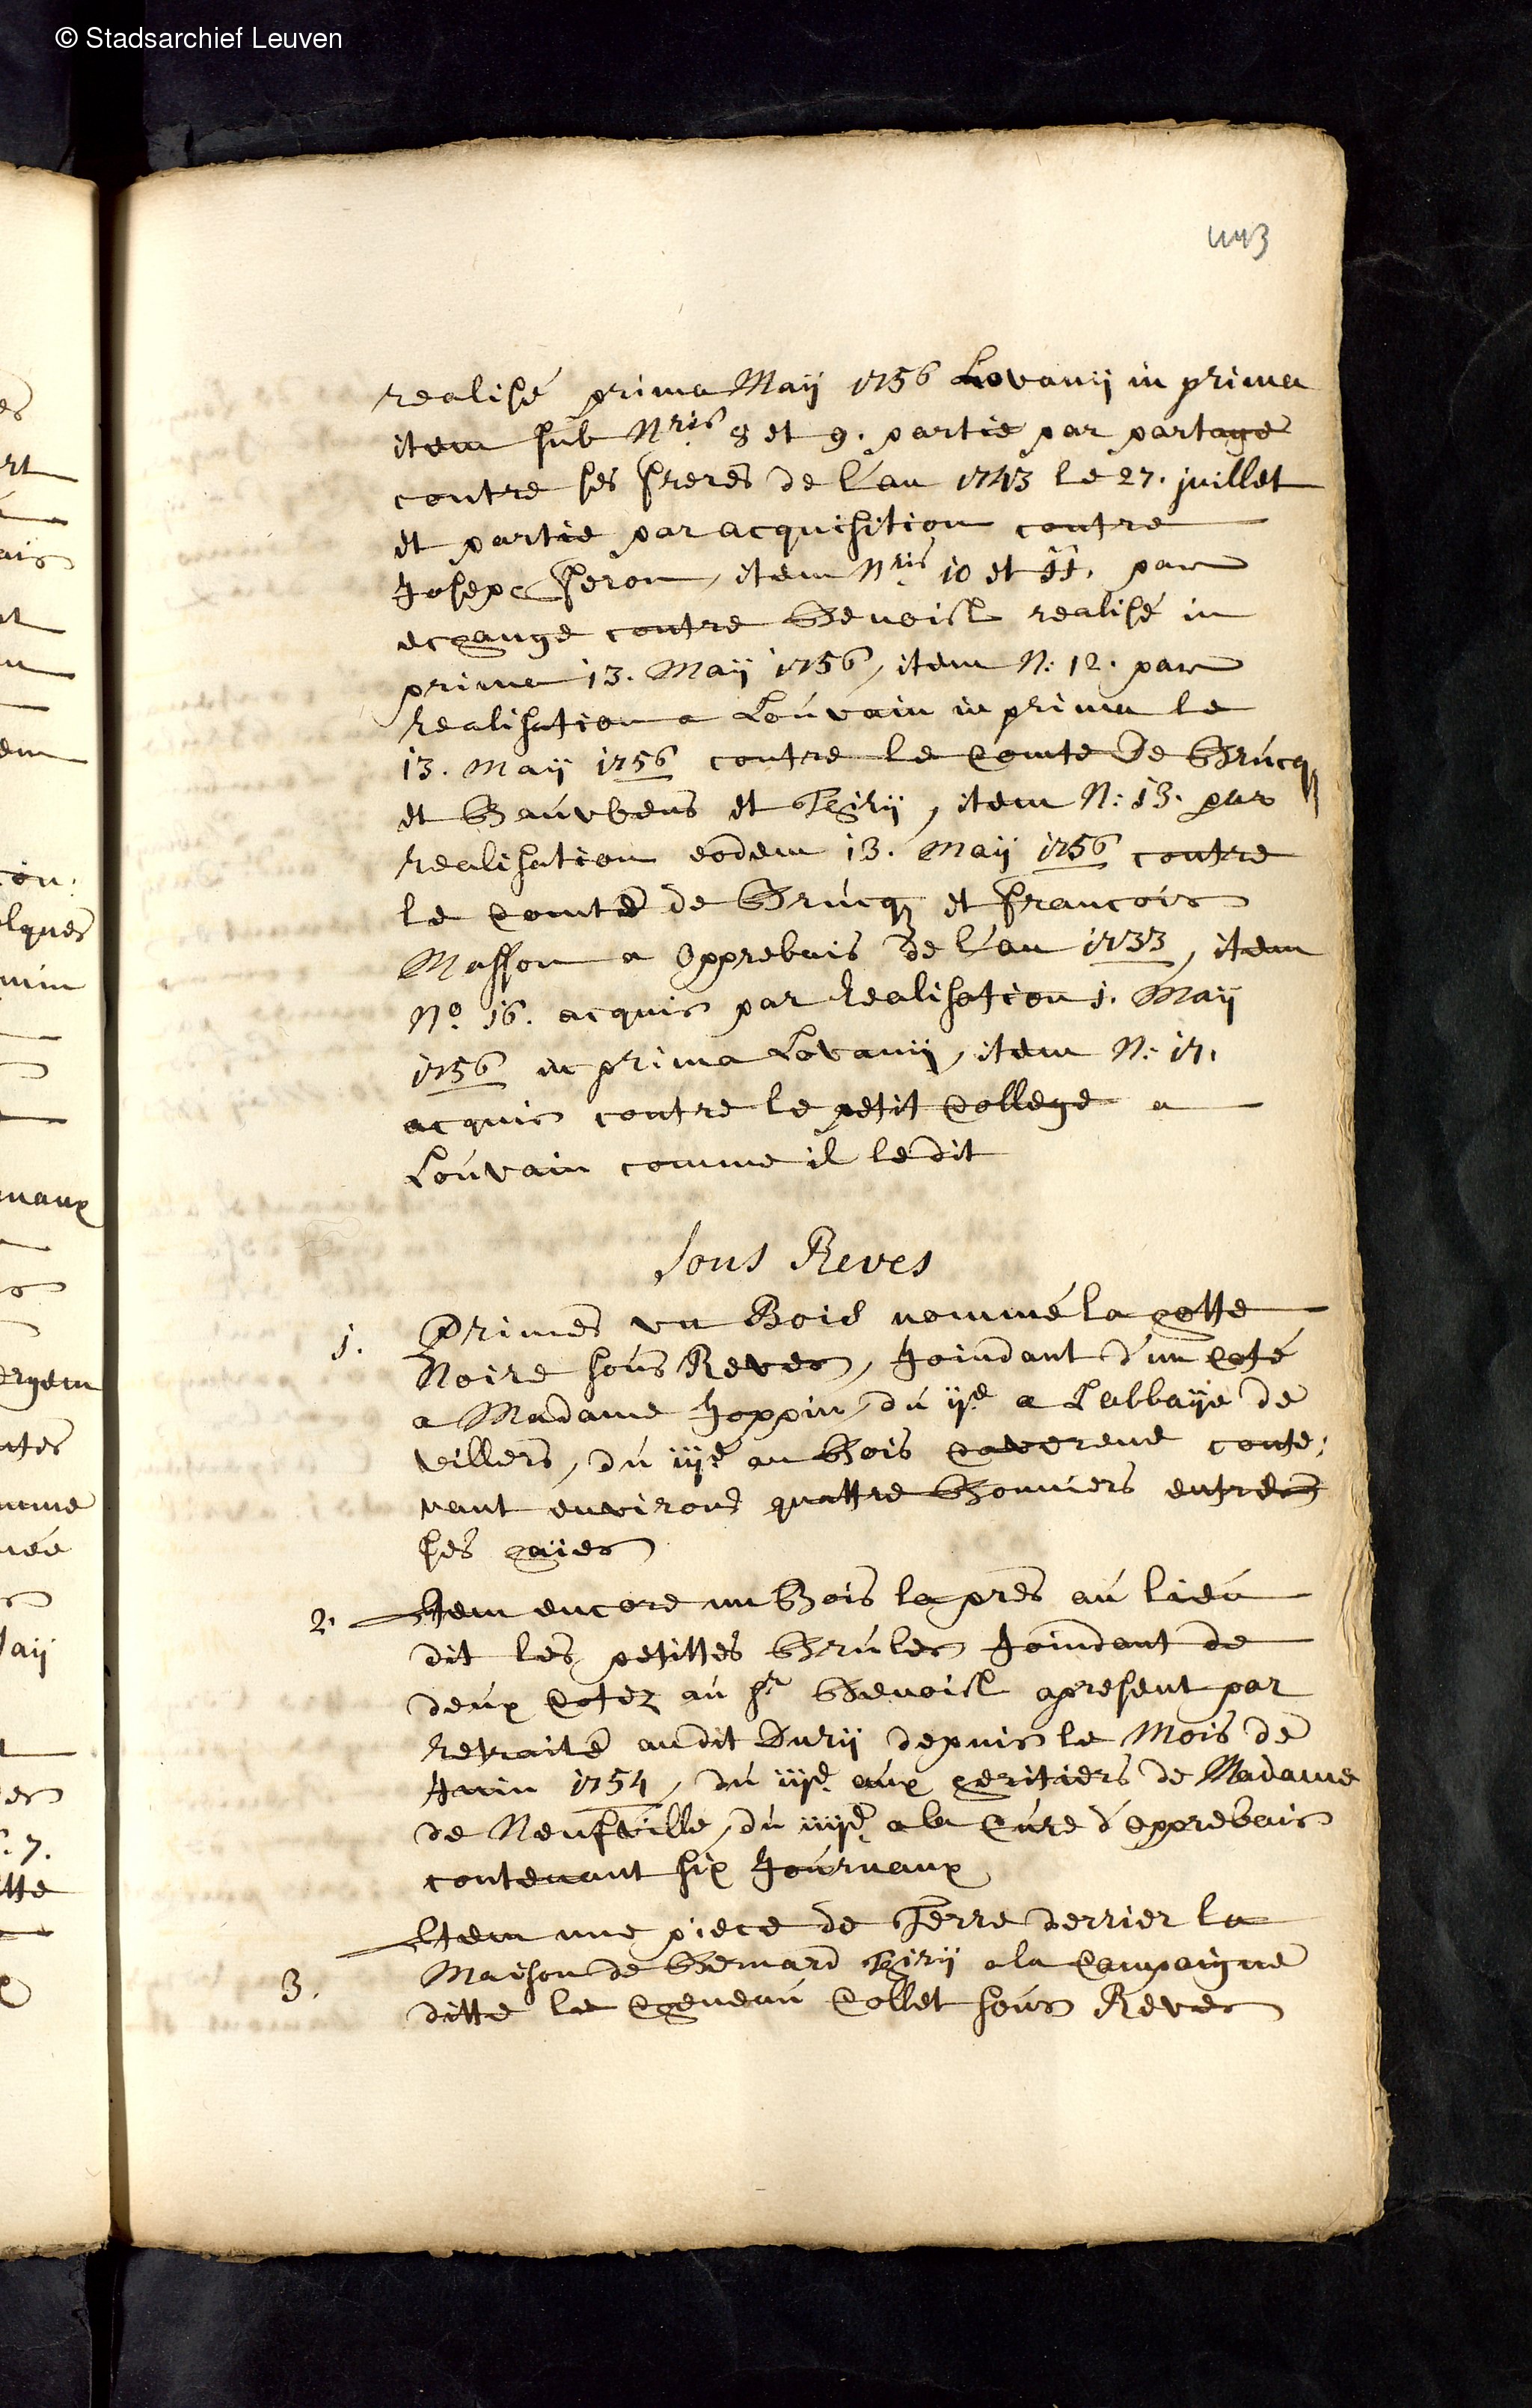 © Stadsarchief Leuven
443
realisé prima Maÿ 1756 Lovanÿ in prima
item sub Nris 8 et 9. partie par partage
contre ses freres de l'an 1743 le 27. juillet
et partie par acquisition contre
Joseph feron, item Nris 10 et 11. par
echange contre Benoist realisé in
prima 13. Maÿ 1756, item N: 12. par
realisation a Louvain in prima le
13. Maÿ 1756 contre le Comte de Brucq
et et Thirÿ, item N: 13. par
realisation eodem 13. Maÿ 1756 contre
le Comte de Brucq et francois
Masson a Opprebais de l'an 1733, item
No 16. acquis par realisation 1. Maÿ
1756 in prima Lovanÿ, item N: 17.
acquis contre le petit College a
Louvain comme il le dit
Sous Reves
1. Primes un Bois nommé la hotte
Noire sous Reves, Joindant d'un coté
a Madame Hoppin, du ije a l'abbaÿe de
villers, du iije au Bois conte:
nant environs quattre Bonniers entre
ses haijes
2. Item encore un Bois la pres au lieu
dit les petittes Brules Joindant de
deux Cotez au Sr Benoist apresent par
retraite audit Durÿ depuis le Mois de
Juin 1754, du iije aux heritiers de Madame
de Neufville, du iiije a la Cure d'opprebais
contenant six Journaux
Item une piece de Terre derrier la
3. Maison de Bernard Thirÿ a la Campaigne
ditte le Cheneau Collet sous Reves